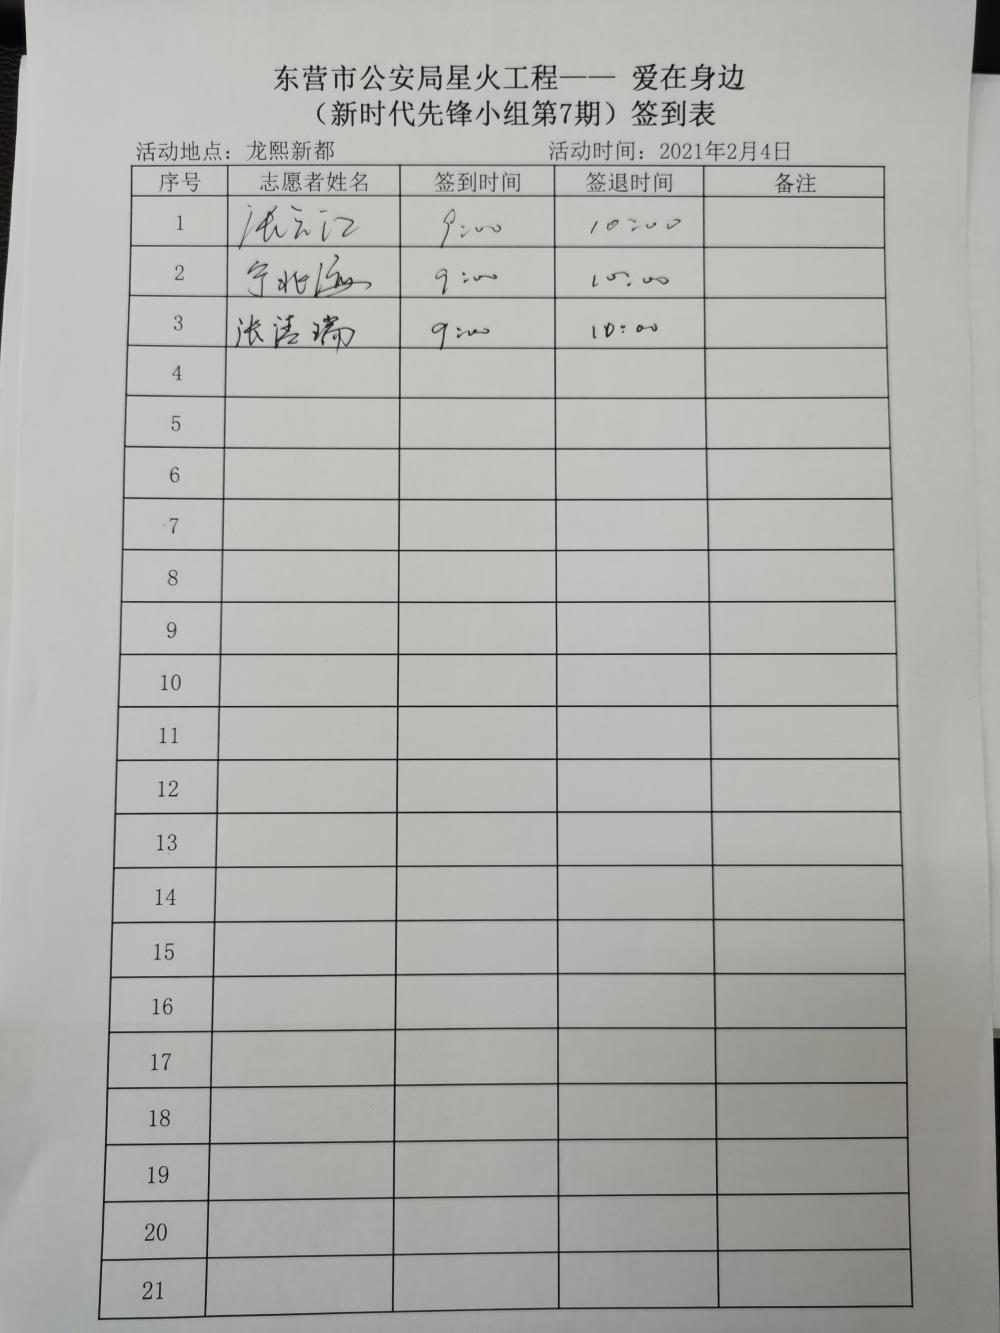 东营市公安局星火工程—— 爱在身边
（新时代先锋小组第7期）签到表
活动地点：龙熙新都 活动时间：2021年2月4日
序号 志愿者姓名 签到时间 签退时间 备注
1 张云江 9:00 10:00
2 宁北海 9:00 10:00
3 张清瑞 9:00 10:00
4
5
6
7
8
9
10
11
12
13
14
15
16
17
18
19
20
21